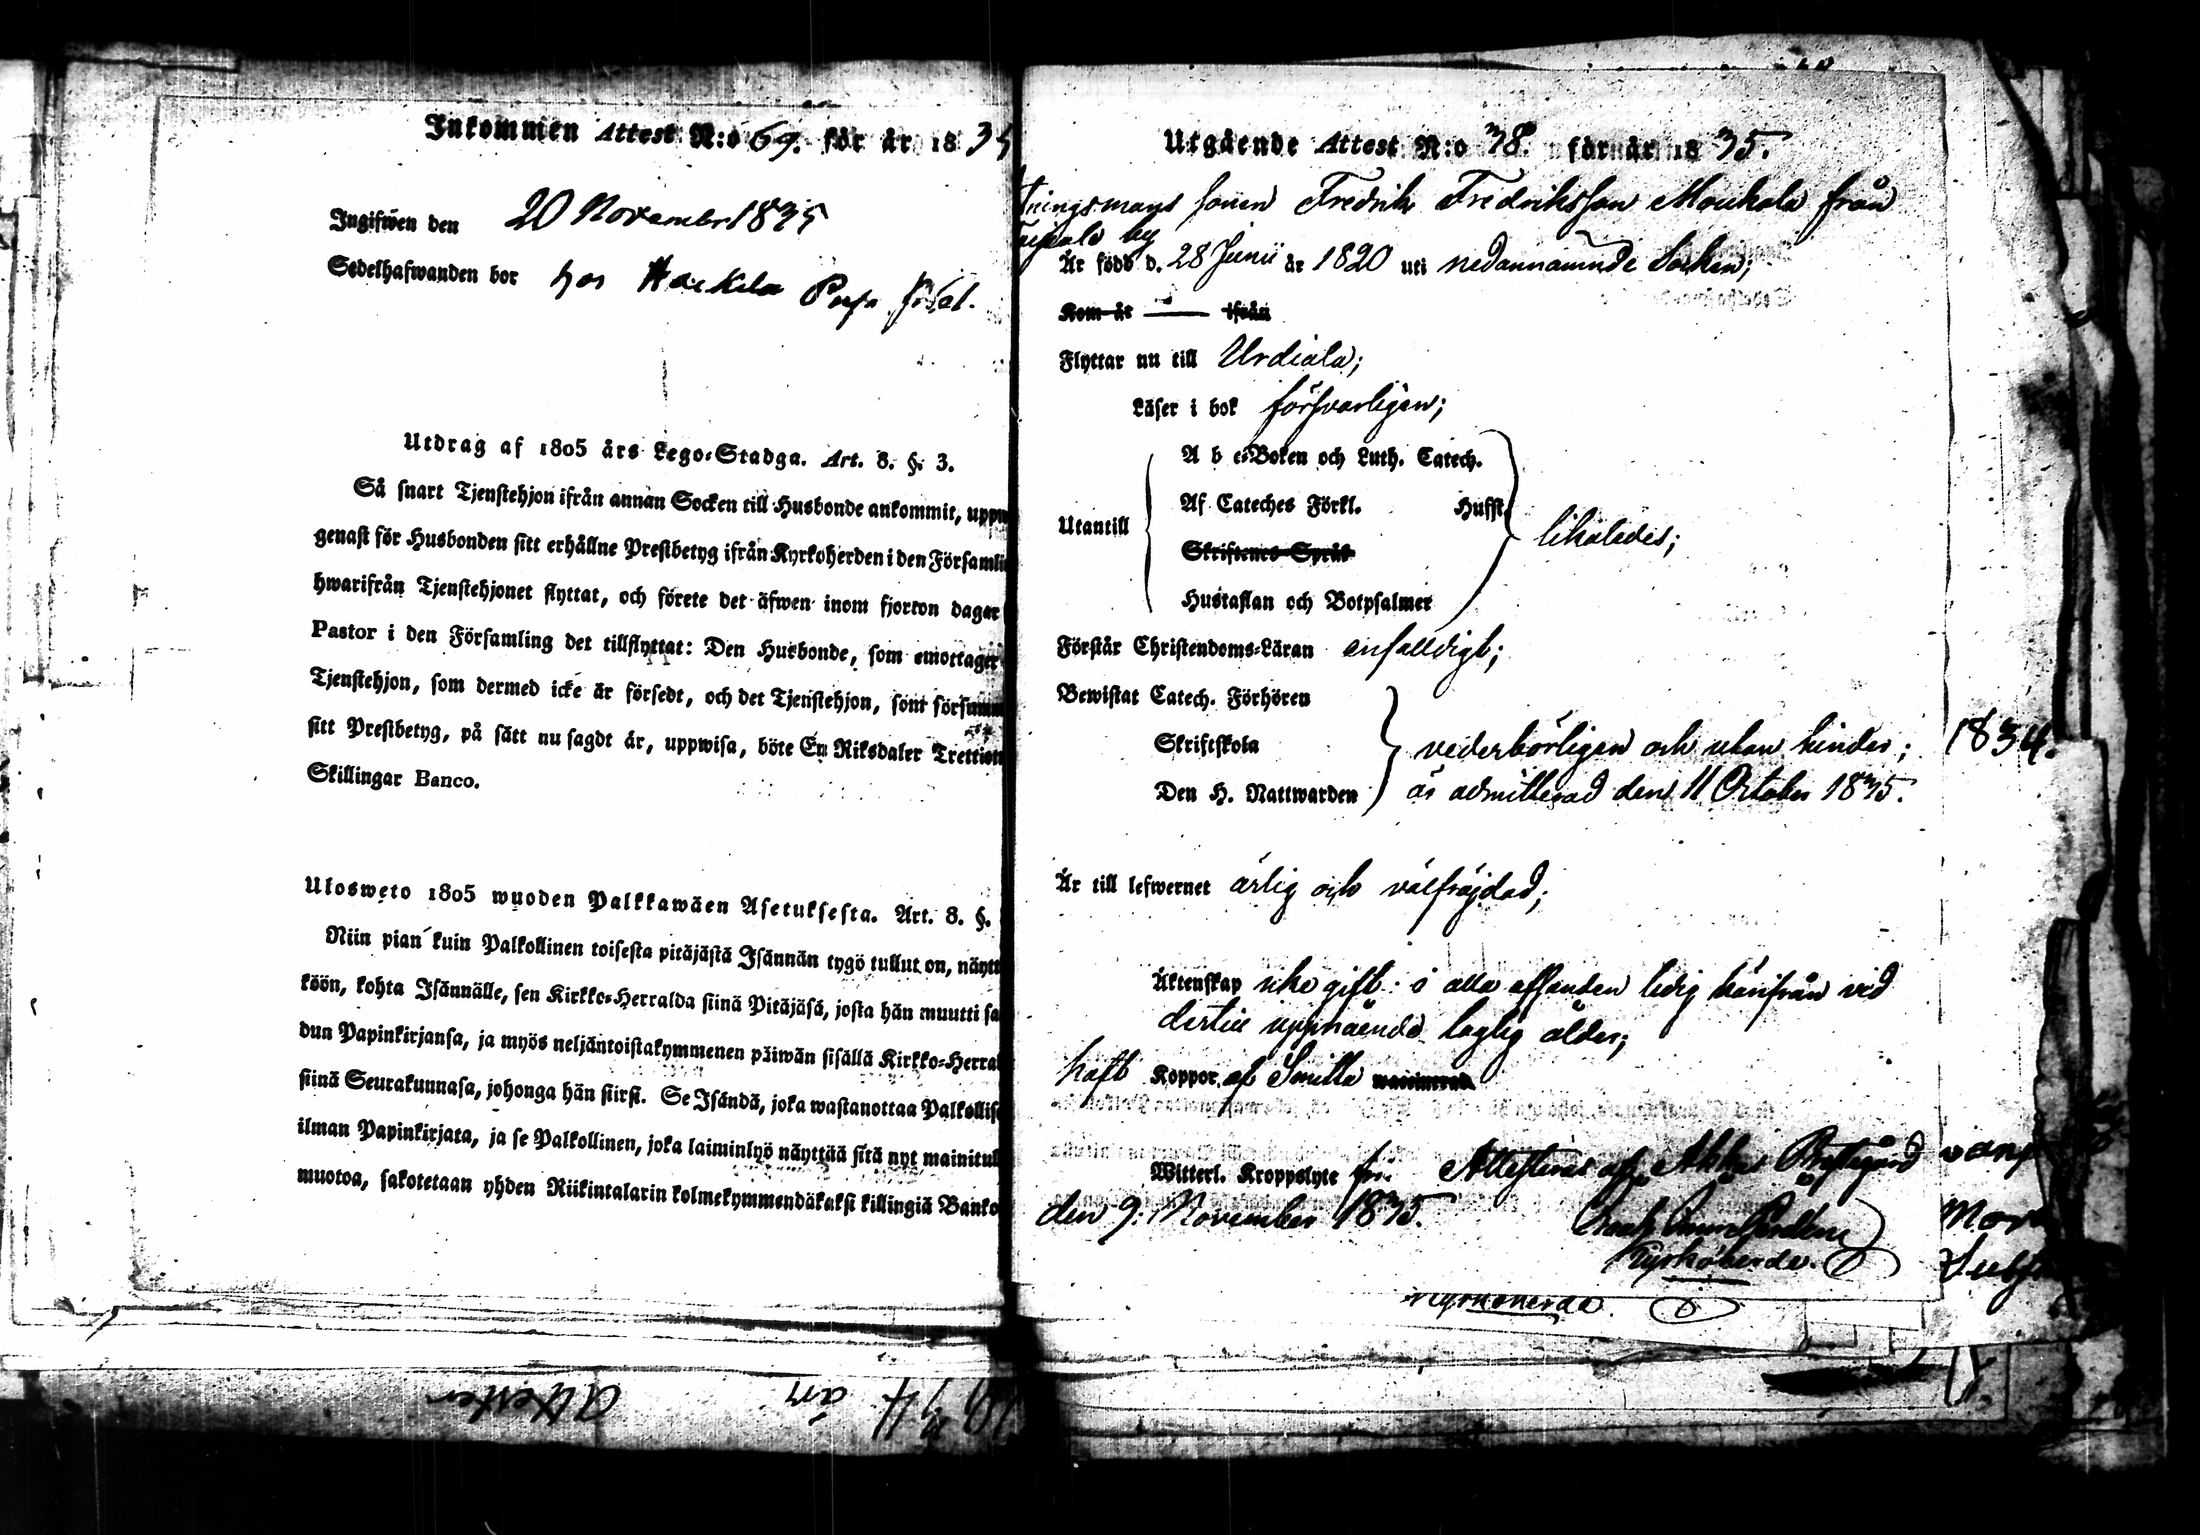 Inkommen Attest N:o 69. för år 1835
Ingifwen den 20 November 1835
Sedelhafwanden bor hos
Utdrag af 1805 års Lego-Stadga. Art. 8. §. 3.
Så snart Tjenstehjon ifrån annan Socken till Husbonde ankommit, uppw
genast för Husbonden sitt erhållne Prestbetyg ifrån Kyrkoherden i den Församli
hwarifrån Tjenstehjonet flyttat, och förete det äfwen inom fjorton dagar
Pastor i den Församling det tillflyttat: Den Husbonde, som emottager
Tjenstehjon, som dermed icke är försedt, och det Tjenstehjon, som försumm
sitt Prestbetyg, på sätt nu sagdt är, uppwisa, böte En Riksdaler Trettiotw
Skillingar Banco.
Ulosweto 1805 wuoden Palkkawäen Asetuksesta. Art. 8. §.
Niin pian kuin Palkollinen toisesta pitäjästä Isännän tygö tullut on, näytt
köön, kohta Isännälle, sen Kirkko-Herralda siinä Pitäjäsä, josta hän muutti sa
dun Papinkirjansa, ja myös neljäntoistakymmenen päiwän sisällä Kirkko-Herral
siinä Seurakunnasa, johonga hän siirsi. Se Isändä, joka wastanottaa Palkollise
ilman Papinkirjata, ja se Palkollinen, joka laiminlyö näyttää sitä nyt mainitul
muotoa, sakotetaan yhden Riikintalarin kolmekymmendäkaksi killingiä Banko
Utgående Attest N:o 38. för år 1835.
sonen Fredrik Fredriksson Moukola från
by
Är född d. 28 Junii år 1820 uti nedannämnde Socken;
Kom år — ifrån
Flyttar nu till Urdiala;
Läser i bok försvarligen;
A b c-Boken och Luth. Catech.
Af Cateches Förkl. Husst.
Utantill likaledes;
Skriftenes Språk
Hustaflan och Botpsalmer
Förstår Christendoms-Läran enfalldigt;
Bewistat Catech. Förhören
Skriftskola vederbörligen och utan hinder; 1834.
Den H. Nattwarden är admitterad den 11 October 1835.
Är till lefwernet ärlig och välfräjdad;
Äktenskap icke gift: i alla afseenden ledig härifrån vid
dertill uppnående laglig ålder;
haft Koppor af Smitta vaccinerad
Witterl. Kroppslyte fri. Attesteras af Akkas Prestegård
den 9. November 1835.
Kyrkoherde.
Kyrkoherde.
Attester